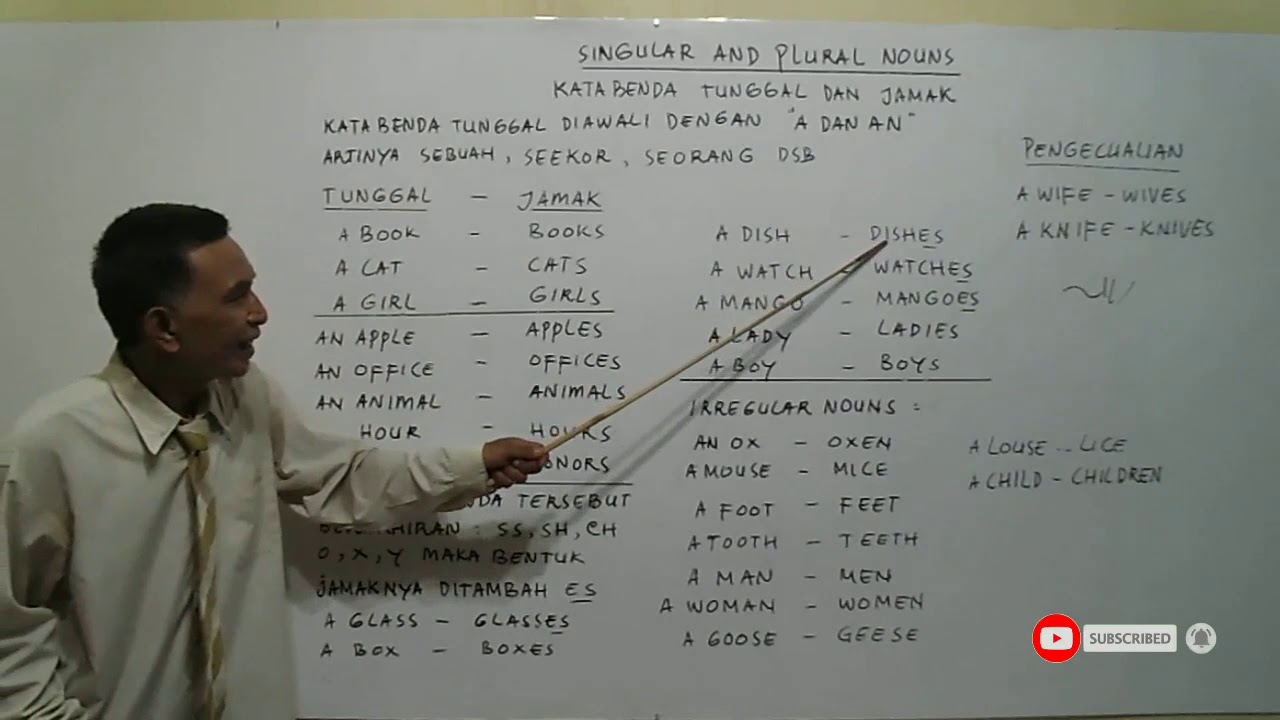 SINGULAR AND PLURAL NOUNS
KATA BENDA TUNGGAL DAN JAMAK
KATA BENDA TUNGGAL DIAWALI DENGAN "A DAN AN"
ARTINYA SEBUAH, SEEKOR, SEORANG DSB
TUNGGAL - JAMAK
A BOOK - BOOKS
A CAT - CATS
A GIRL - GIRLS
AN APPLE - APPLES
AN OFFICE - OFFICES
AN ANIMAL - ANIMALS
HOUR - HOURS
TERSEBUT
SS, SH, CH
O, X, Y MAKA BENTUK
JAMAKNYA DITAMBAH ES
A GLASS - GLASSES
A BOX - BOXES
A DISH - DISHES
A WATCH - WATCHES
A MANGO - MANGOES
A LADY - LADIES
A BOY - BOYS
IRREGULAR NOUNS :
AN OX - OXEN
A MOUSE - MICE
A FOOT - FEET
A TOOTH - TEETH
A MAN - MEN
A WOMAN - WOMEN
A GOOSE - GEESE
PENGECUALIAN
A WIFE - WIVES
A KNIFE - KNIVES
A LOUSE - LICE
A CHILD - CHILDREN
SUBSCRIBED